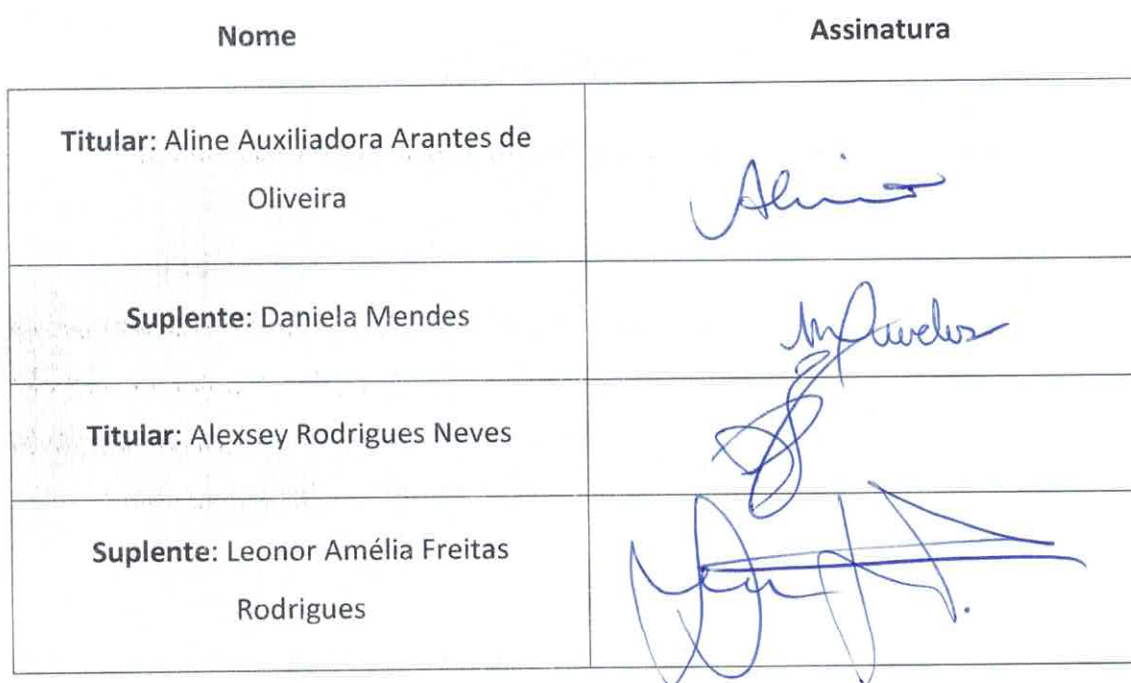 Nome Assinatura
Titular: Aline Auxiliadora Arantes de
Oliveira
Suplente: Daniela Mendes
Titular: Alexsey Rodrigues Neves
Suplente: Leonor Amélia Freitas
Rodrigues